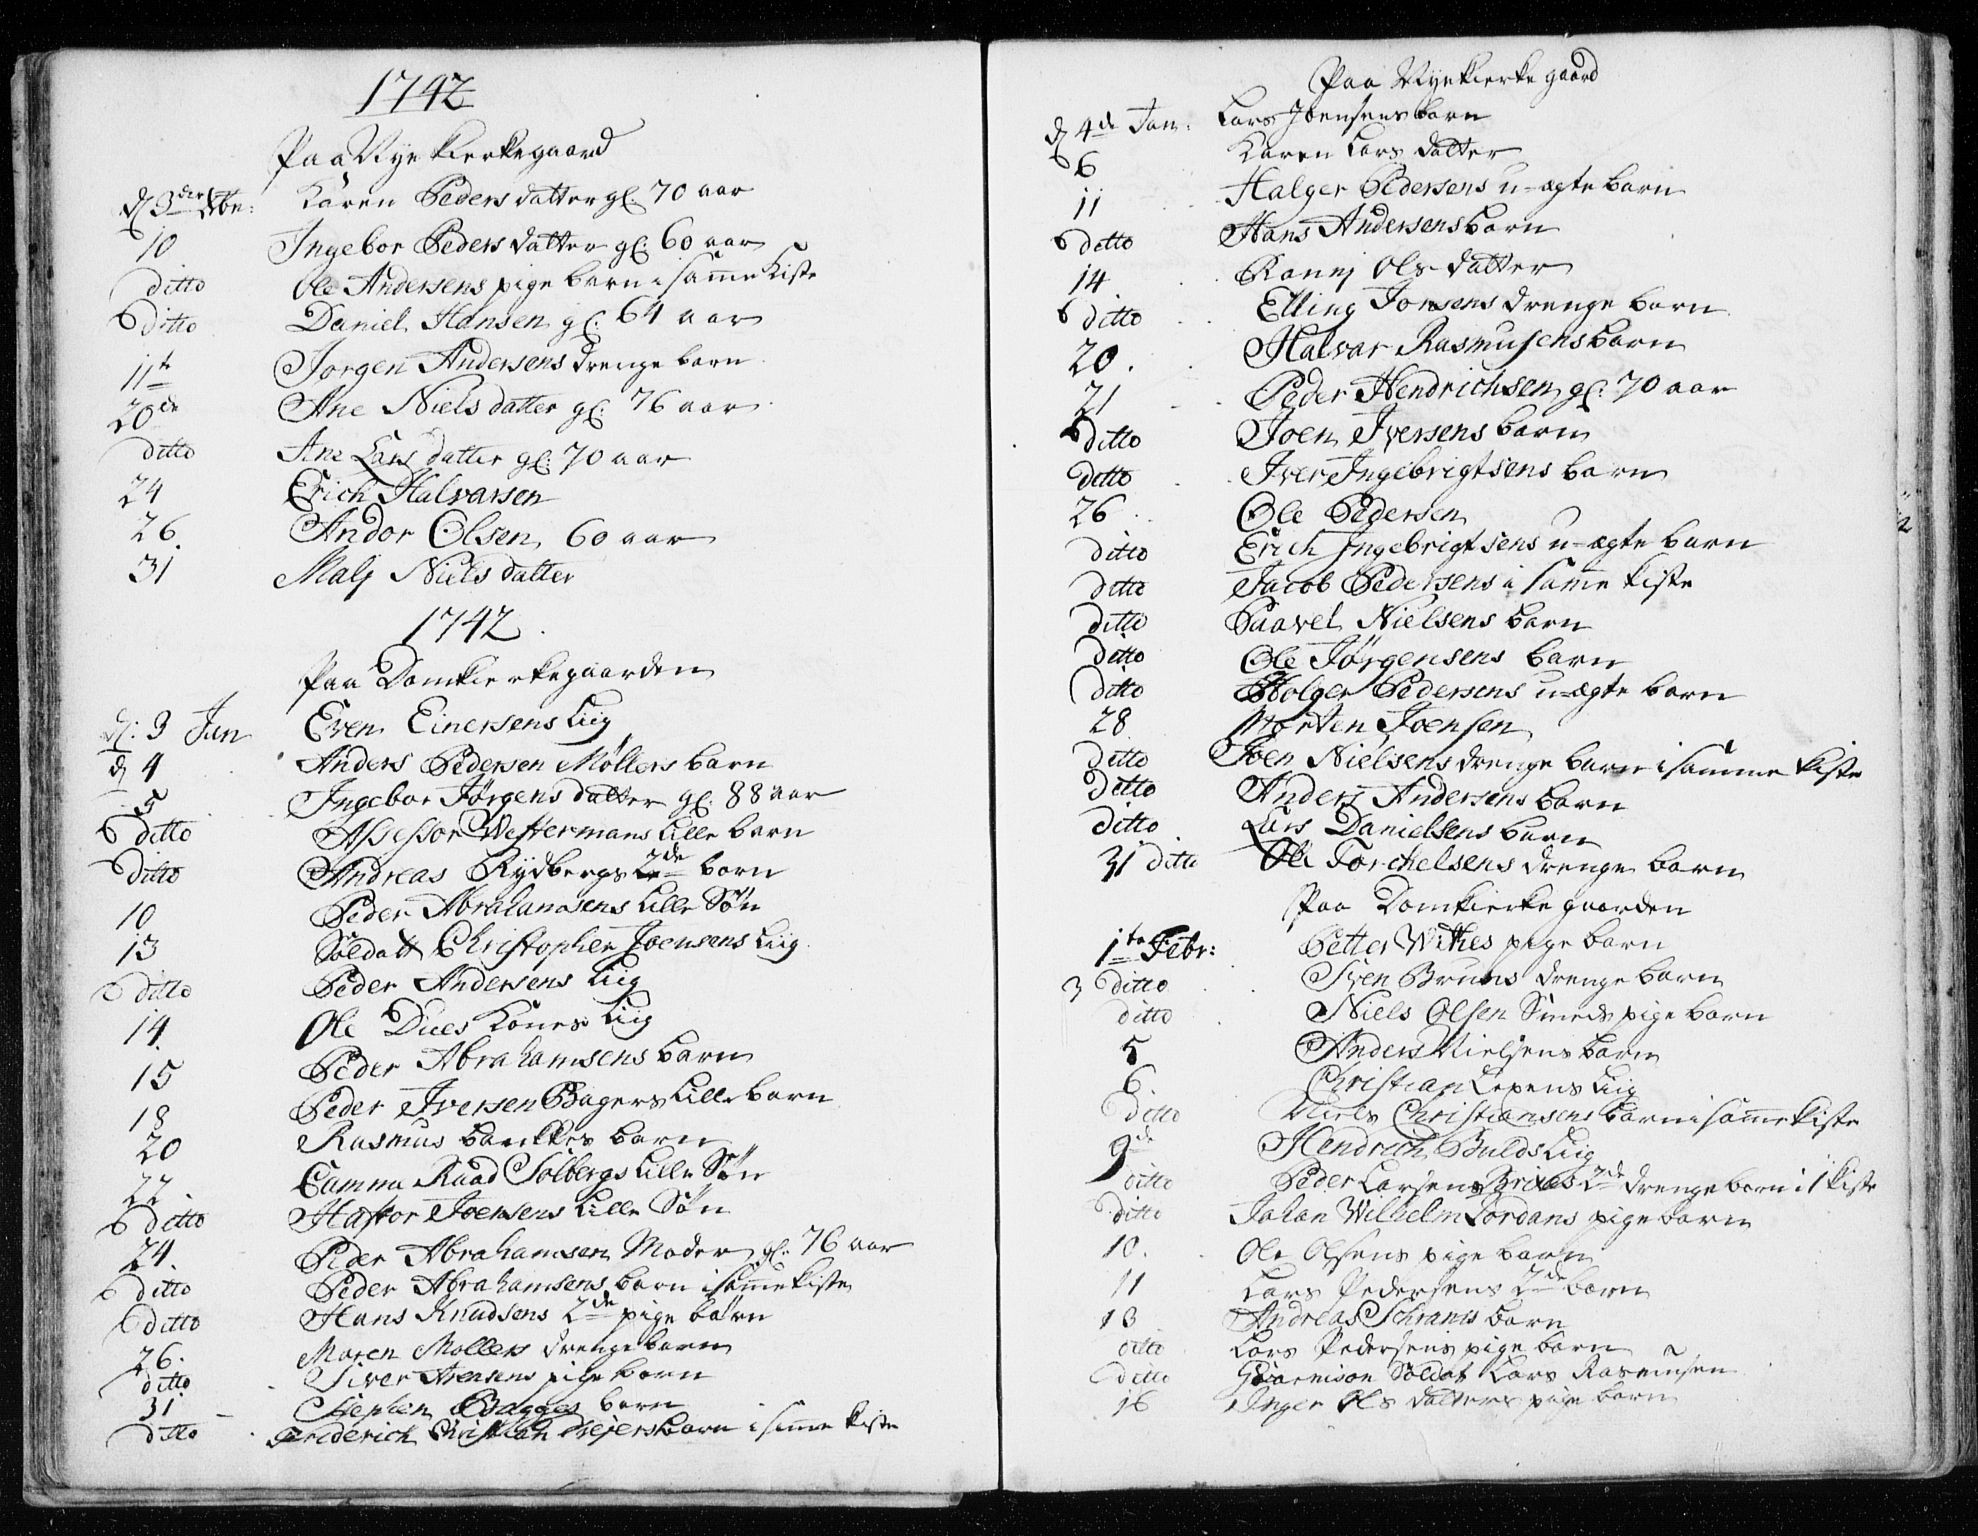 1742
Paa Nye kierkegaard
d 3der Xbr: Karen Peders datter gl. 70 aar
10 Ingebor Peders datter gl: 60 aar
ditto Ole Andersens pige barn i same kiste
ditto Daniel Hansen gl: 64 aar
11te Jorgen Andersens drenge barn
20de Ane Niels datter gl: 76 aar
ditto Ane Lars datter gl: 70 aar
24 Erich Halvarsen
26 Andor Olsen 60 aar
31 Malj Niels datter
1742
Paa Domkierkegaarden
d: 3 Jan Even Einersens Liig
d 4 Anders Pedersen Møllers barn
5 Ingebor Jørgens datter gl: 88 aar
ditto Assessor Westermans Lille barn
ditto Andreas Rydbergs 2de barn
10 Peder Abrahamsens Lille Søn
13 Soldatt Christopher Joensens Liig
ditto Peder Andersens Liig
14 Ole Dues Kones Liig
15 Peder Abrahamsens barn
18 Peder Iversen Bagers Lille barn
20 Rasmus banckes barn
22. Camma Raad Solbergs Lille Søn
ditto Haftor Joensens Lille Søn
24. Peder Abrahamsen Moder gl: 76 aar
ditto Peder Abrahamsens barn i same kiste
ditto Hans Knudsens 2de pige børn
26. Maren Mollers drenge barn
ditto Siver Arensens pige barn
31 Stephen Bagges barn
ditto Friderich Christian Mejers barn i same kiste
Paa Nye kierke gaard
d 4de Jan: Lars Joensens barn
6 Karen Lars datter
11 Halger Pedersens u-ægte barn
ditto Hans Andersens barn
14 Ranej Ols datter
ditto Elling Jonsens drenge barn
20. Halvar Rasmusens barn
21 Peder Hendrichsen gl: 70 aar
ditto Joen Iversens barn
ditto Iver Ingebrigtsens barn
26 Ole Pedersen
ditto Erich Ingebrigtsens u-ægte barn
ditto Jacob Pedersens i same kiste
ditto Paavel Nielsens barn
ditto Ole Jørgensens barn
ditto Holger Pedersens u-ægte barn
28 Morten Joensen
ditto Joen Nielsens drenge barn i samme kiste
ditto Anders Andersens barn
ditto Lars Danielsens barn
31 ditto Ole Torchelsens drenge barn
Paa Domkierke gaarden
1te Febr: Petter Withes pige barn
3 ditto Sven Bruns drenge barn
ditto Niels Olsen Smeds pige barn
5 Anders Nielsens barn
6. Christian Lexens Liig
ditto Niels Christiansens barn i same kiste
9de Hendrich Bulds Liig
ditto Peder Larsens Brixes 2de drenge born i 1 kiste
ditto Johan Wilhelm Lordans pige barn
10. Ole Olsens pige barn
11 Lars Pedersens 2de barn
13 Andreas Schrams barn
ditto Lars Pedersens pige barn
ditto Guarnison Soldat Lars Rasmusen
16 Inger Ols datters pige barn